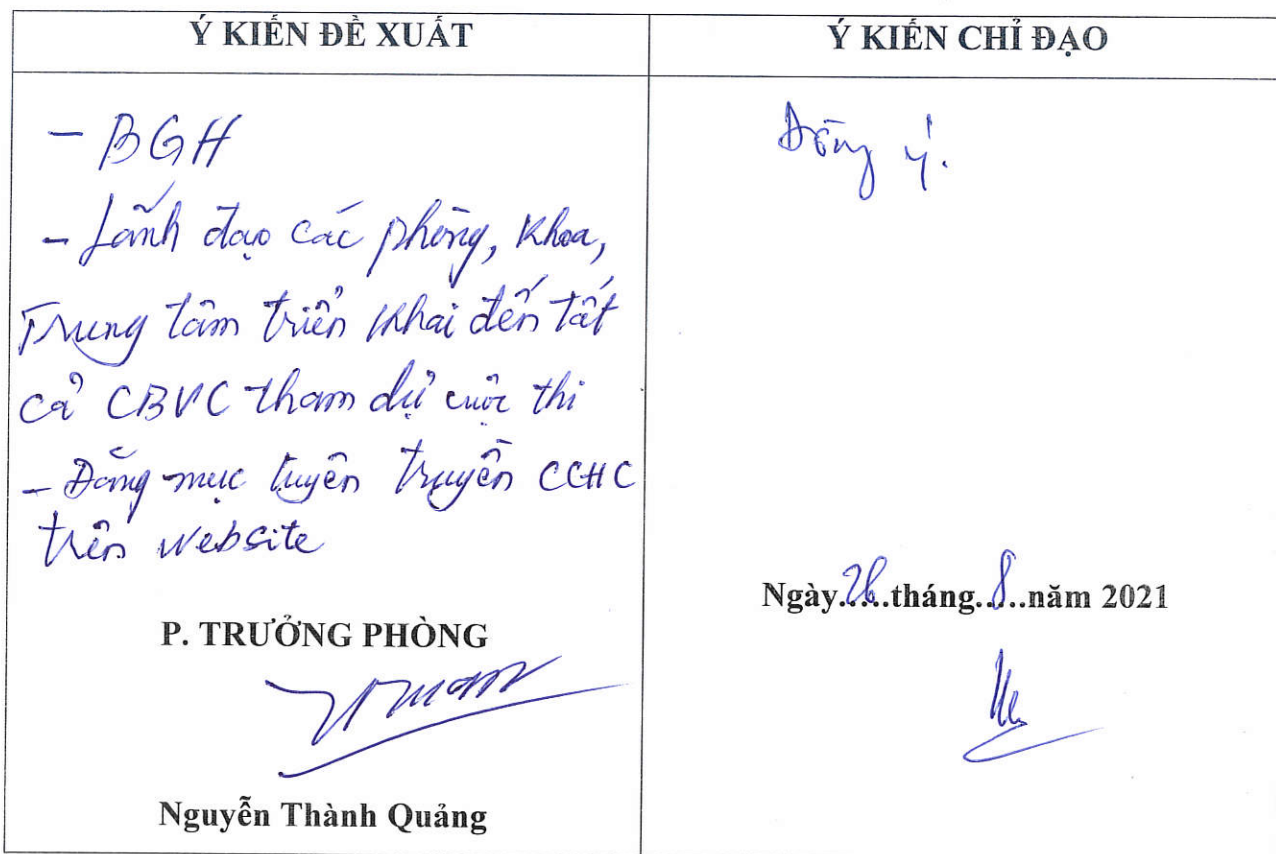 Ý KIẾN ĐỀ XUẤT
- BGH
- Lãnh đạo các phòng, khoa,
Trung tâm triển khai đến tất
cả CBVC tham dự cuộc thi
- Đăng mục tuyên truyền CCHC
trên website
P. TRƯỞNG PHÒNG
Nguyễn Thành Quảng
Ý KIẾN CHỈ ĐẠO
Đồng ý.
Ngày 26 tháng 8 năm 2021